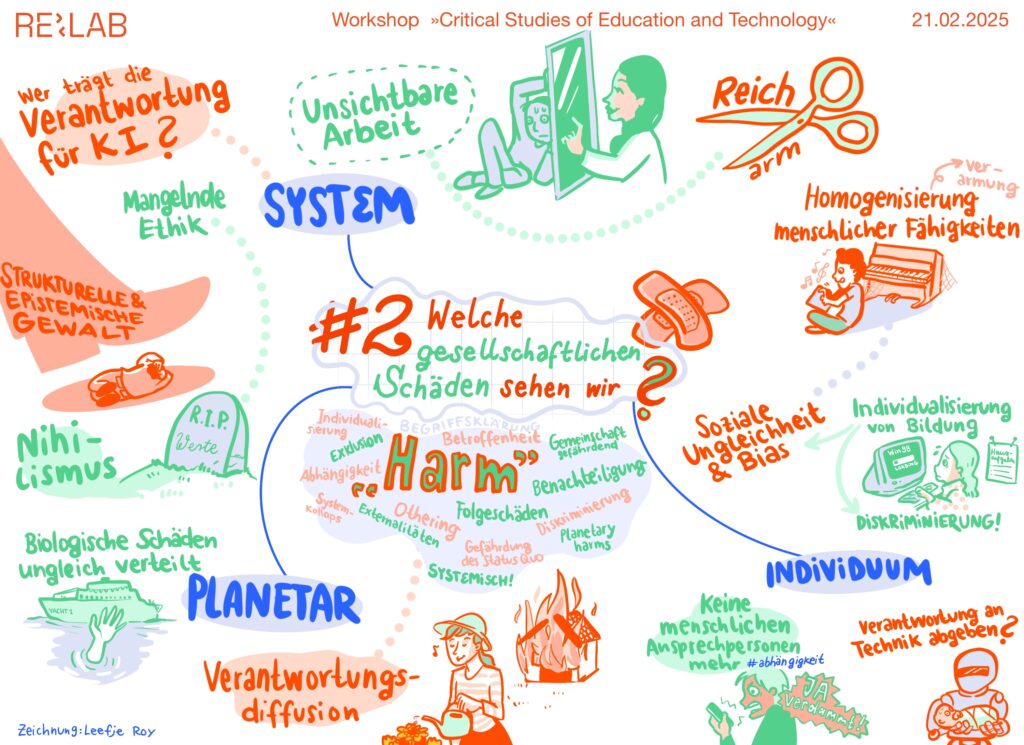 RE:LAB
Workshop »Critical Studies of Education and Technology«
21.02.2025
Wer trägt die
Verantwortung
für KI?
Mangelnde
Ethik
STRUKTURELLE &
EPISTEMISCHE
GEWALT
Nihi-
lismus
R.I.P.
Werte
SYSTEM
Unsichtbare
Arbeit
Reich
arm
ver-
armung
Homogenisierung
menschlicher Fähigkeiten
#2 Welche
gesellschaftlichen
Schäden sehen wir?
BEGRIFFSKLÄRUNG
„Harm"
Individuali-
sierung
Exklusion
Betroffenheit
Gemeinschaft
gefährdend
Abhängigkeit
Benachteiligung
System-
Kollaps
Externalitäten
Othering
Folgeschäden
Diskriminierung
Gefährdung
des Status Quo
Planetary
harms
SYSTEMISCH!
Soziale
Ungleichheit
& Bias
Individualisierung
von Bildung
Win 98
LOADING
Haus-
aufgabe
DISKRIMINIERUNG!
Biologische Schäden
ungleich verteilt
YACHT 1
PLANETAR
Verantwortungs-
diffusion
INDIViDUUM
Keine
menschlichen
Ansprechpersonen
mehr #abhängigkeit
JA
verdammt!
Verantwortung an
Technik abgeben?
Zeichnung: Leefje Roy